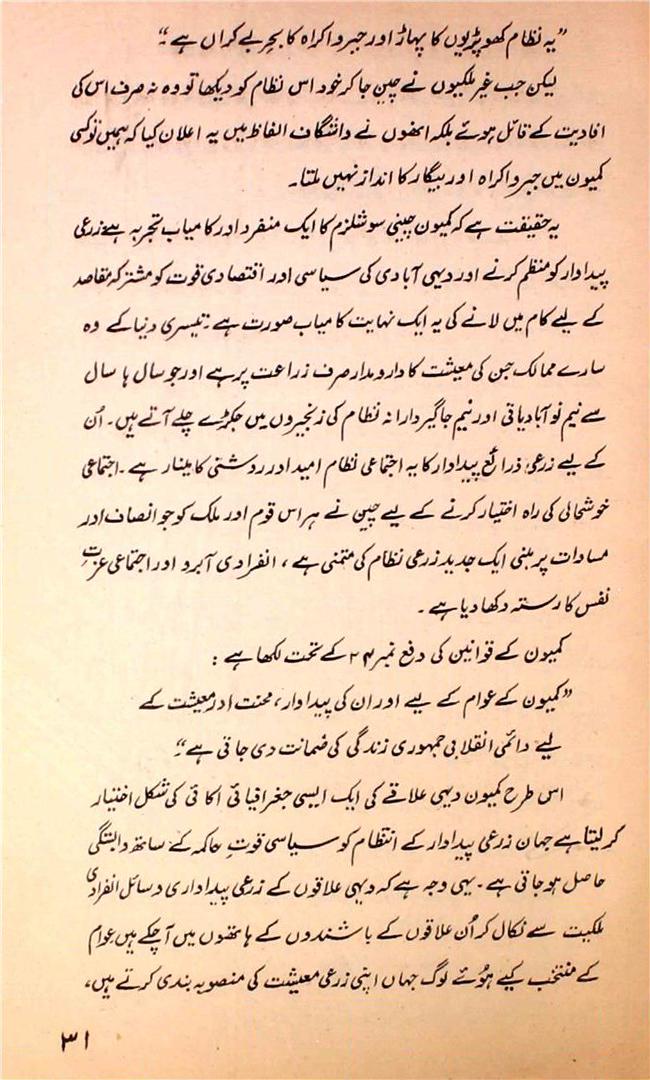 ”یہ نظام کھوپڑیوں کا پہاڑ اور جبرو اکراہ کا بحرِ بے کراں ہے۔“
لیکن جب غیر ملکیوں نے چین جا کر خود اس نظام کو دیکھا تو وہ نہ صرف اس کی
افادیت کے قائل ہوئے بلکہ انھوں نے واشگاف الفاظ میں یہ اعلان کیا کہ ہمیں تو کسی
کمیون میں جبرو اکراہ اور بیگار کا انداز نہیں ملتا۔
یہ حقیقت ہے کہ کمیون چینی سوشلزم کا ایک منفرد اور کامیاب تجربہ ہے زرعی
پیداوار کو منظم کرنے اور دیہی آبادی کی سیاسی اور اقتصادی قوت کو مشترکہ مقاصد
کے لیے کام میں لانے کی یہ ایک نہایت کامیاب صورت ہے۔ تیسری دنیا کے وہ
سارے ممالک جن کی معیشت کا دارو مدار صرف زراعت پر ہے اور جو سال ہا سال
سے نیم نو آبادیاتی اور نیم جاگیردارانہ نظام کی زنجیروں میں جکڑے چلے آتے ہیں۔ اُن
کے لیے زرعی ذرائع پیداوار کا یہ اجتماعی نظام امید اور روشنی کا مینار ہے۔ اجتماعی
خوشحالی کی راہ اختیار کرنے کے لیے چین نے ہر اس قوم اور ملک کو جو انصاف اور
مساوات پر مبنی ایک جدید زرعی نظام کی متمنی ہے، انفرادی آبرو اور اجتماعی عزتِ
نفس کا رستہ دکھا دیا ہے۔
کمیون کے قوانین کی دفع نمبر ۲۴ کے تحت لکھا ہے :
”کمیون کے عوام کے لیے اور ان کی پیداوار، محنت اور معیشت کے
لیے دائمی انقلابی جمہوری زندگی کی ضمانت دی جاتی ہے۔“
اس طرح کمیون دیہی علاقے کی ایک ایسی جغرافیائی اکائی کی شکل اختیار
کر لیتا ہے جہاں زرعی پیداوار کے انتظام کو سیاسی قوتِ حاکمہ کے ساتھ وابستگی
حاصل ہو جاتی ہے۔ یہی وجہ ہے کہ دیہی علاقوں کے زرعی پیداواری وسائل انفرادی
ملکیت سے نکال کر اُن علاقوں کے باشندوں کے ہاتھوں میں آ چکے ہیں عوام
کے منتخب کیے ہوئے لوگ جہاں اپنی زرعی معیشت کی منصوبہ بندی کرتے ہیں،
۳۱